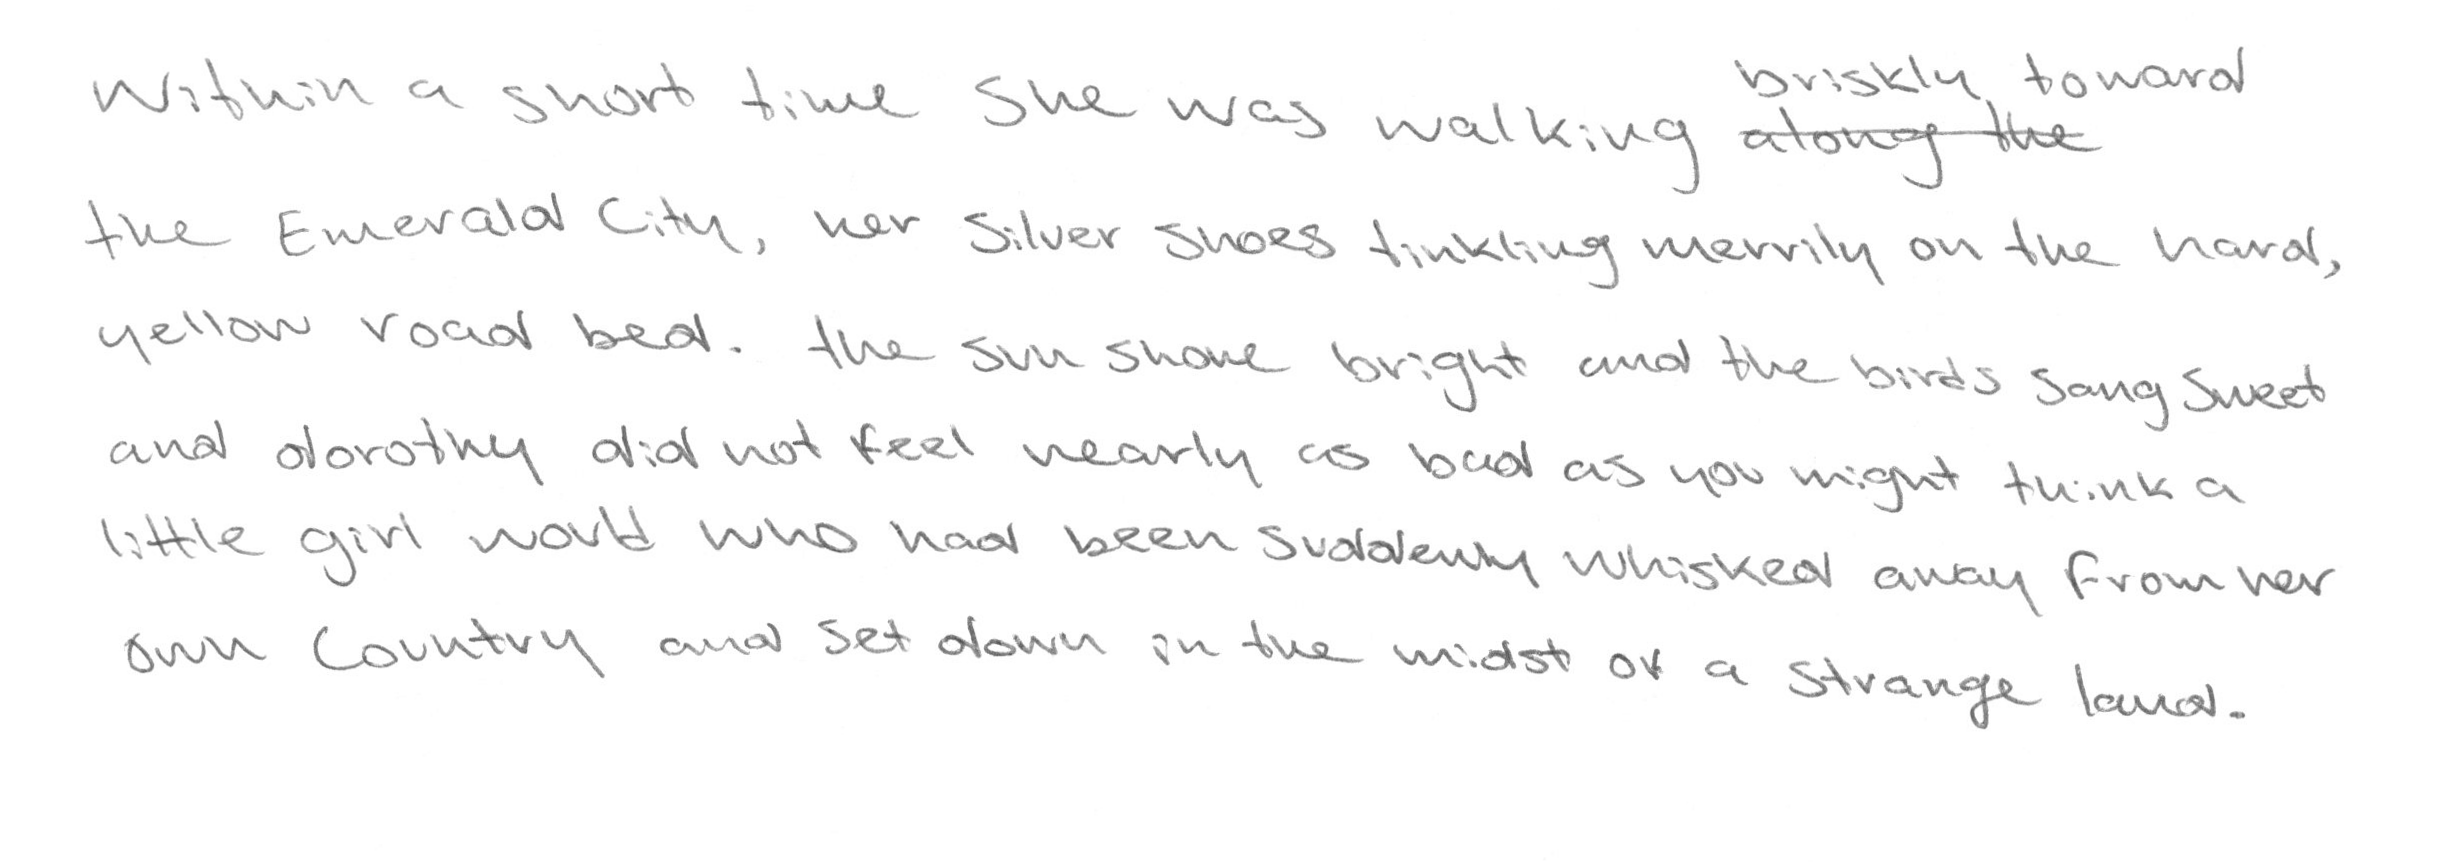 Within a short time she was walking ~~along the~~ briskly toward
the Emerald City, her silver shoes tinkling merrily on the hard,
yellow road bed. the sun shone bright and the birds sang sweet
and dorothy did not feel nearly as bad as you might think a
little girl would who had been suddenly whisked away from her
own country and set down in the midst of a strange land.